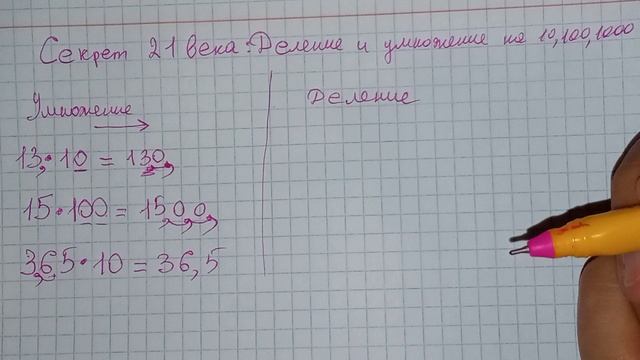 Секрет 21 века: Деление и умножение на 10,100,1000
Умножение
13·10 = 130,
15·100 = 1500,
3,65·10 = 36,5
Деление